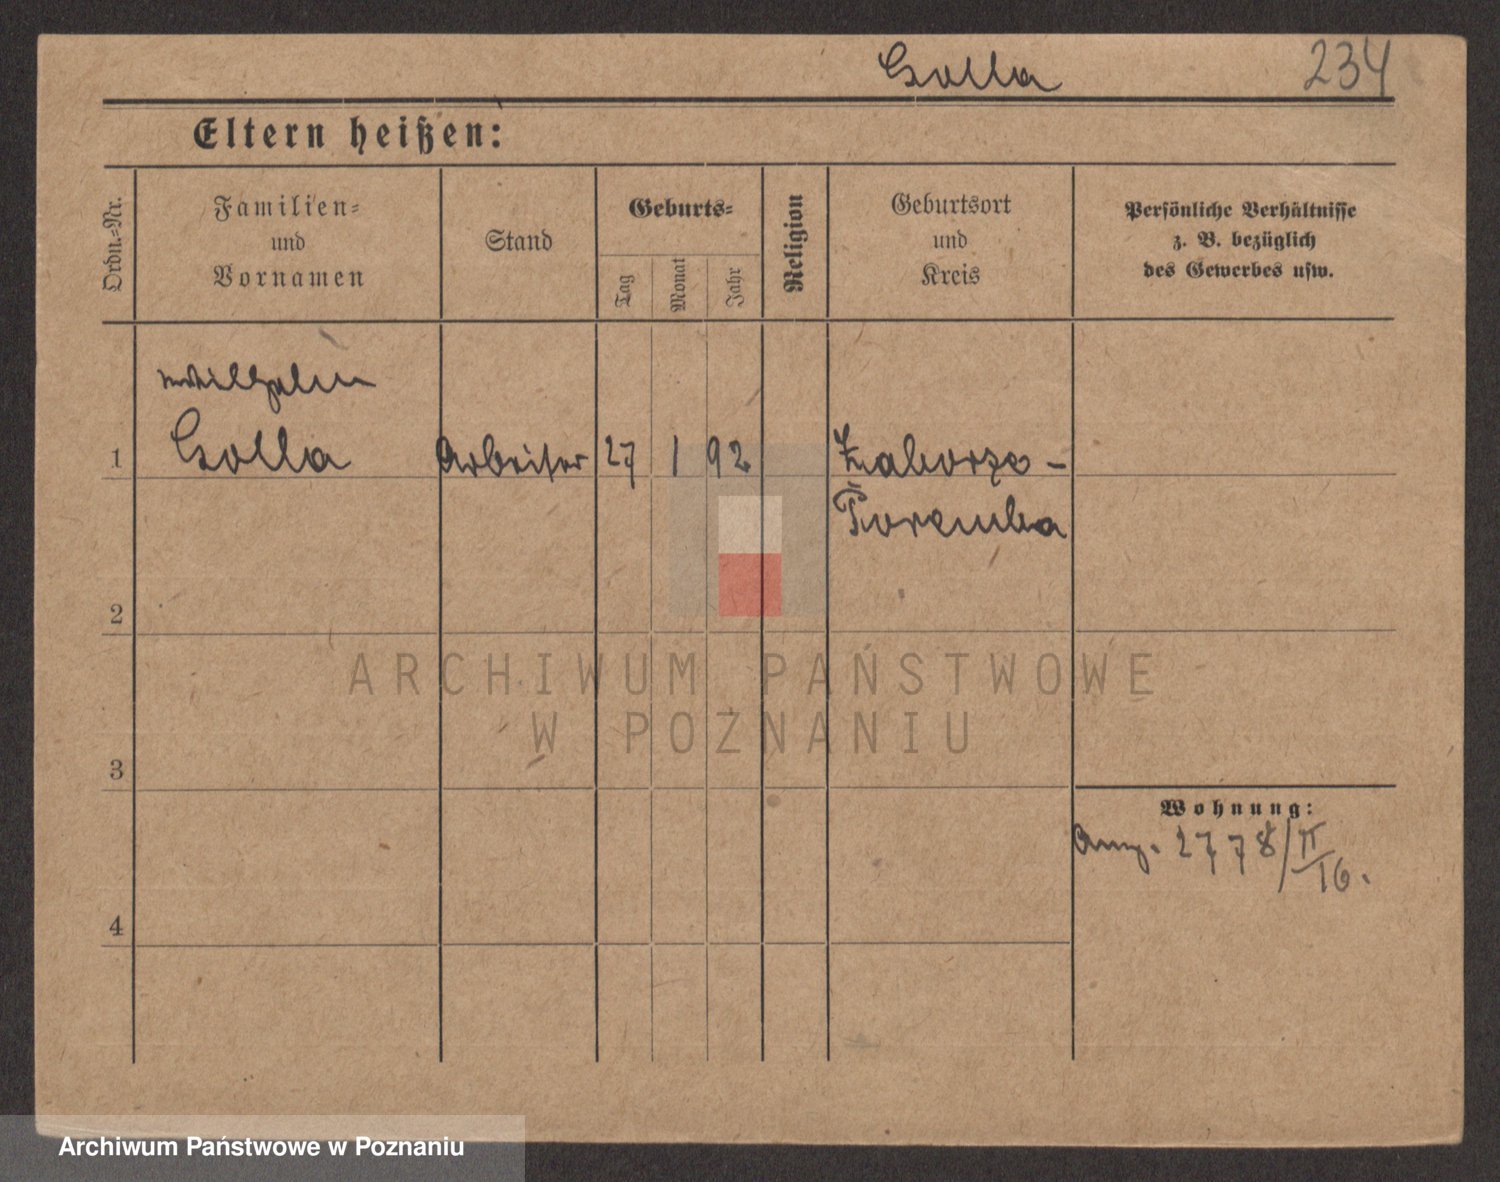 Golla 234
Eltern heißen:
Ordn.-Nr.
Familien-
und
Vornamen
Stand
Geburts-
Tag
Monat
Jahr
Religion
Geburtsort
und
Kreis
Persönliche Verhältnisse
z. B. bezüglich
des Gewerbes usw.
Wilhelm
1 Golla Arbeiter 27 1 92 Zaborze-
Poremba
2
3
4
Wohnung:
2778/II
16.
ARCHIWUM PAŃSTWOWE
W POZNANIU
Archiwum Państwowe w Poznaniu